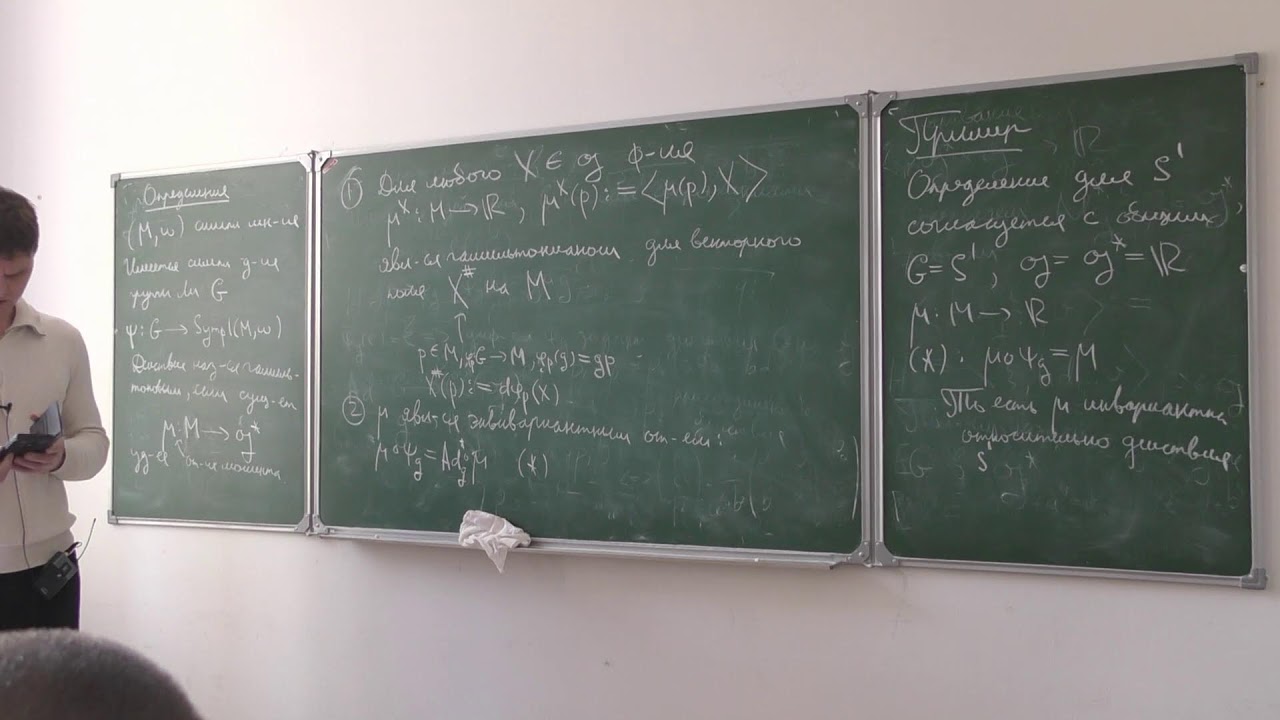 Определения
(M, ω) симпл мн-ие
Имеется симпл д-ие
группы Ли G
ψ: G → Sympl(M, ω)
Действие наз-ся гамиль-
тоновым, если сущ-ет
μ: M → 𝔤*
уд-ее от-ие момента
① Для любого X ∈ 𝔤 ф-ия
μ^X: M → ℝ, μ^X(p) := ⟨μ(p), X⟩
явл-ся гамильтонианом для векторного
поля X^# на M
↑
p ∈ M, φ_p: G → M, φ_p(g) = gp
X^#(p) := dφ_p(X)
② μ явл-ся эквивариантным от-ем:
μ∘ψ_g = Ad*_g∘μ (*)
Пример
Определение для S¹
согласуется с общим
G = S¹, 𝔤 = 𝔤* = ℝ
μ: M → ℝ
(*) · μ∘ψ_g = μ
То есть μ инвариантна
относительно действия
S¹